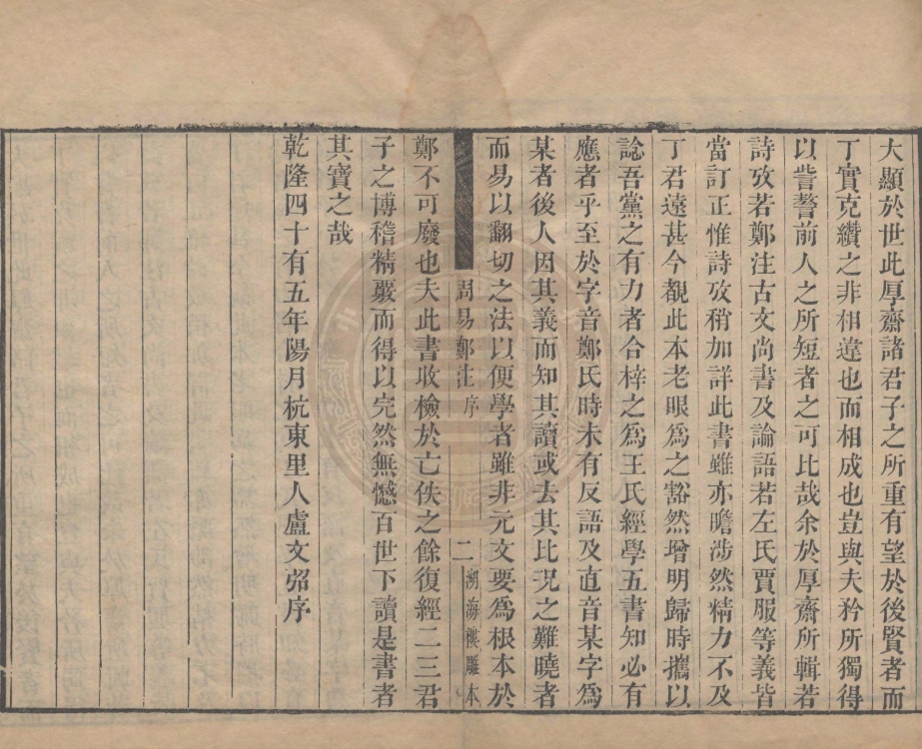 大顯於世此厚齋諸君子之所重有望於後賢者而
丁實克纘之非相違也而相成也豈與夫矜所獨得
以訾謷前人之所短者之可比哉余於厚齋所輯若
詩攷若鄭注古文尚書及論語若左氏賈服等義皆
當訂正惟詩攷稍加詳此書雖亦瞻涉然精力不及
丁君遠甚今覩此本老眼爲之豁然增明歸時攜以
諗吾黨之有力者合梓之爲王氏經學五書知必有
應者乎至於字音鄭氏時未有反語及直音某字爲
某者後人因其義而知其讀或去其比況之難曉者
而易以翻切之法以便學者雖非元文要爲根本於
周易鄭注序 二 湖海樓雕本
鄭不可廢也夫此書收檢於亡佚之餘復經二三君
子之博稽精覈而得以完然無憾百世下讀是書者
其寶之哉
乾隆四十有五年陽月杭東里人盧文弨序